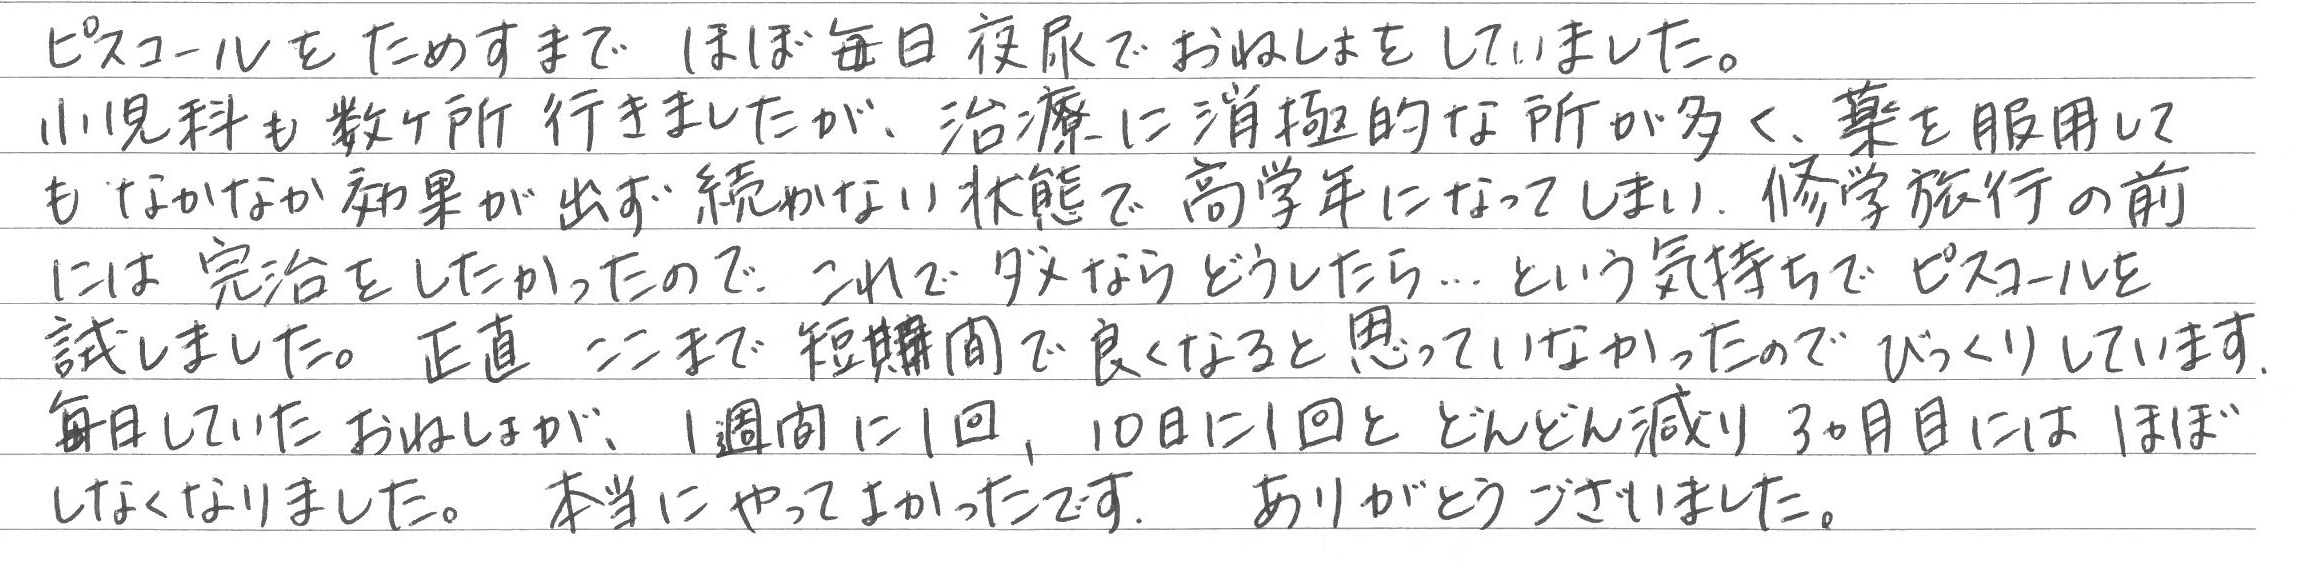 ピスコールをためすまで ほぼ毎日夜尿でおねしょをしていました。
小児科も数ヶ所行きましたが、治療に消極的な所が多く、薬を服用して
もなかなか効果が出ず続かない状態で高学年になってしまい、修学旅行の前
には完治をしたかったので、これでダメならどうしたら…という気持ちでピスコールを
試しました。 正直 ここまで短期間で良くなると思っていなかったのでびっくりしています。
毎日していたおねしょが、1週間に1回, 10日に1回とどんどん減り3ヶ月目にはほぼ
しなくなりました。 本当にやってよかったです. ありがとうございました。